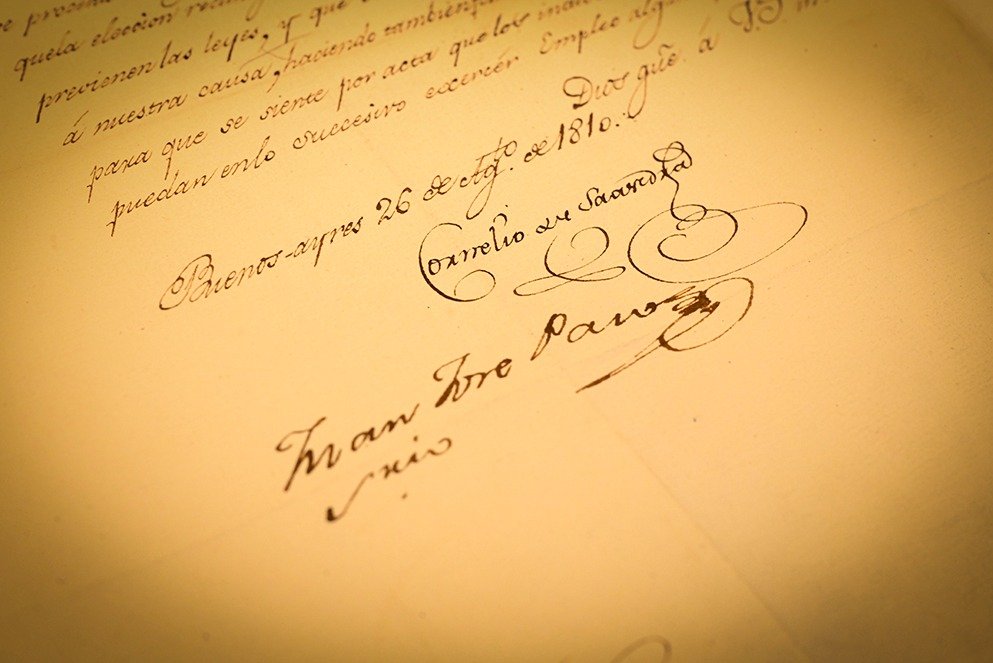 quela eleccion
previenen las leyes, y que
á nuestra causa, haciendo tambien
para que se siente por acta que los
puedan en lo succesivo exercér Empleo
Dios gũe. á
Buenos-ayres 26 de Agto. de 1810.
Cornelio de Saavedra
Juan Jose Passo
Srio.